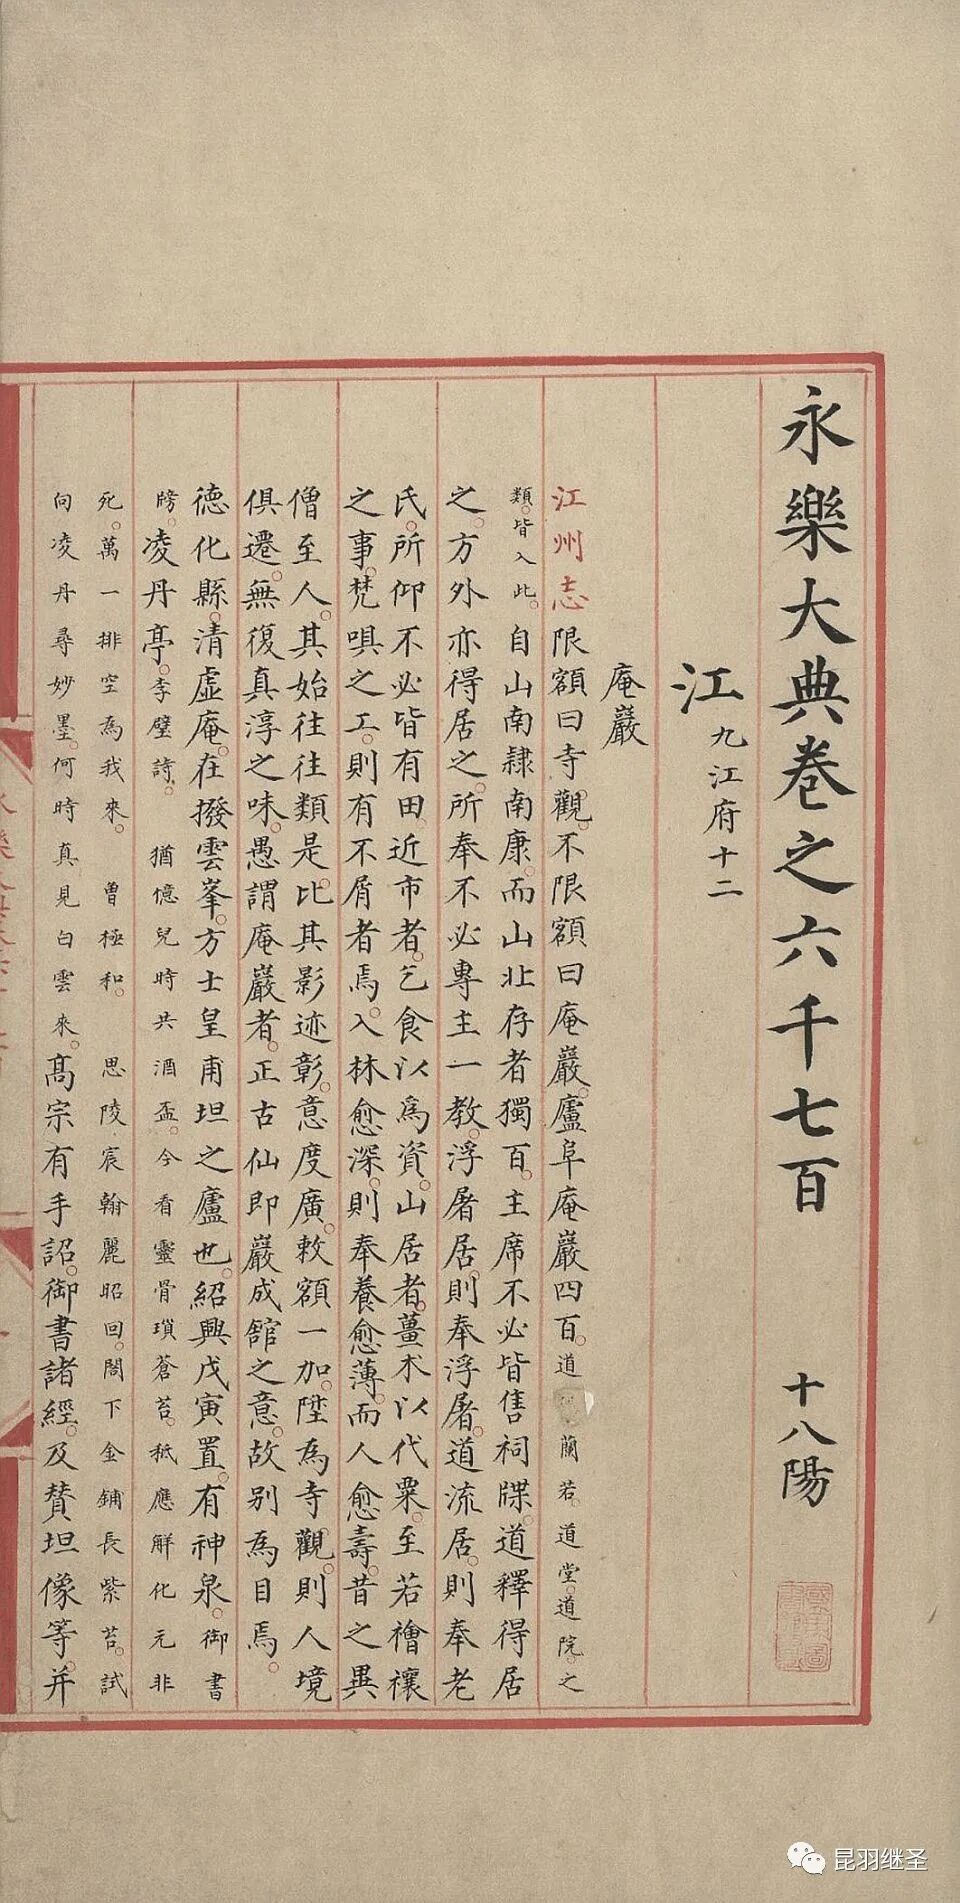 永樂大典卷之六千七百 十八陽
江 九江府十二
庵巖
江州志限額曰寺觀。不限額曰庵巖。廬阜庵巖四百。道蘭若。道堂。道院。之
類。皆入此。自山南隸南康。而山北存者獨百。主席不必皆售祠牒。道釋得居
之。方外亦得居之。所奉不必專主一教。浮屠居。則奉浮屠。道流居。則奉老
氏。所仰不必皆有田。近市者。乞食以爲資。山居者。薑朮以代粟。至若禬禳
之事。梵唄之工。則有不屑者焉。入林愈深。則奉養愈薄。而人愈壽。昔之異
僧至人。其始往往類是。比其影迹彰。意度廣。敕額一加。陞為寺觀。則人境
俱遷。無復真淳之味。愚謂庵巖者。正古仙即巖成舘之意。故別為目焉。
德化縣。清虛庵。在撥雲峯。方士皇甫坦之廬也。紹興戊寅置。有神泉。御書
牓。凌丹亭。李壁詩。 猶憶兒時共酒盃。今看靈骨瑣蒼苔。秖應解化元非
死。萬一排空為我來。 曾極和。 思陵宸翰麗昭回。閤下金鋪長紫苔。試
向凌丹尋妙墨。何時真見白雲來。高宗有手詔。御書諸經。及贊坦像等。并
昆羽继圣